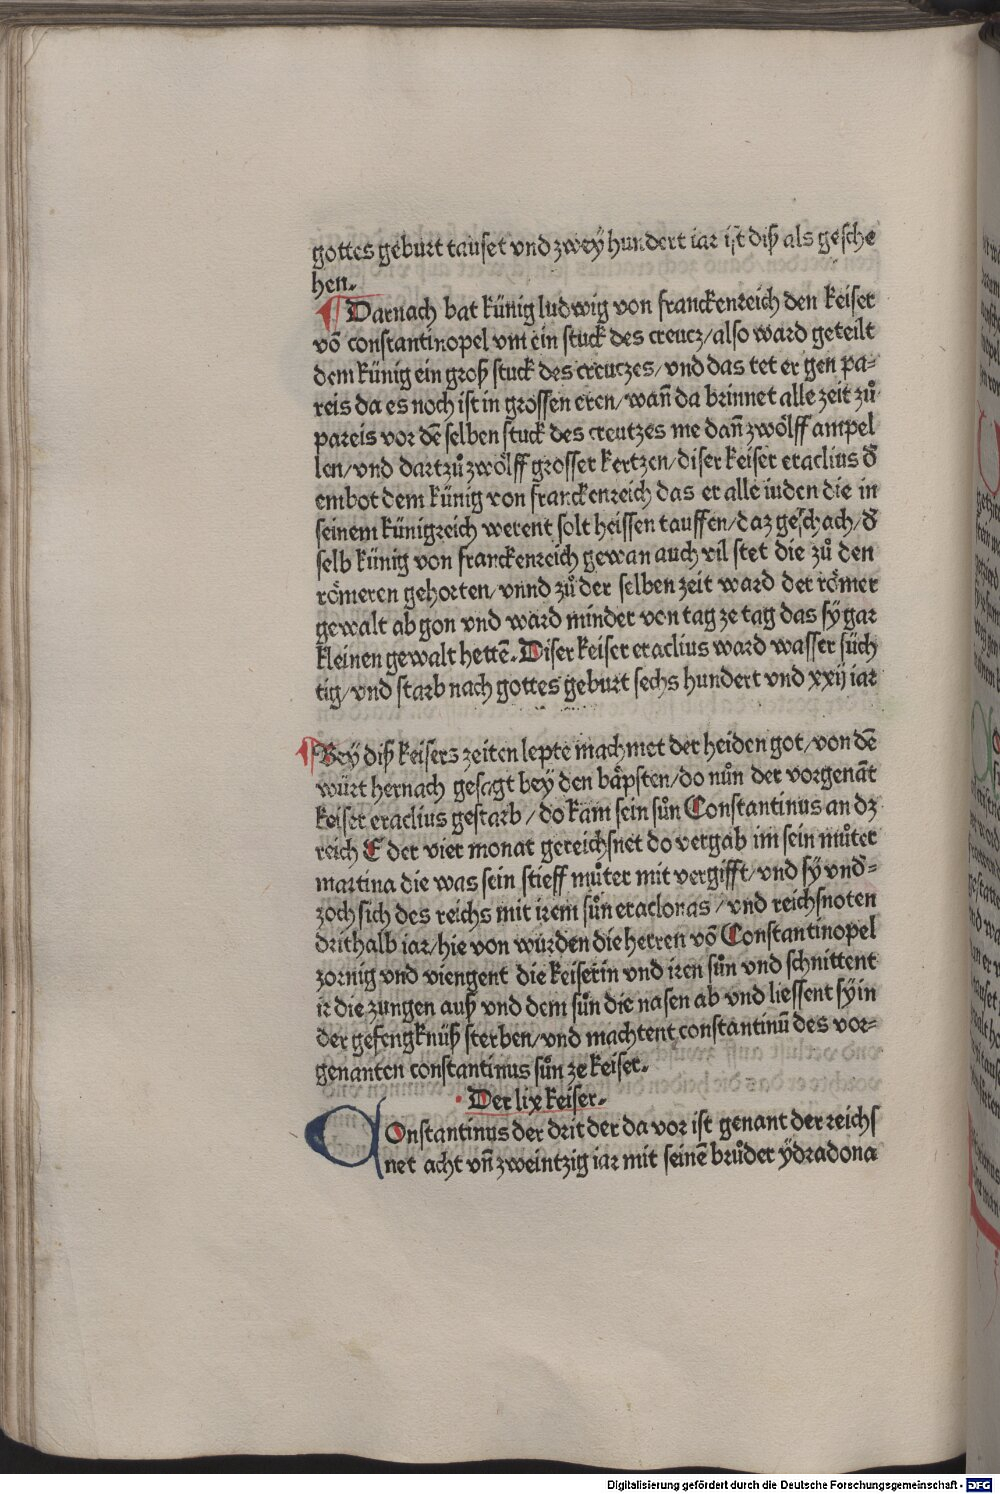 gottes geburt tauset vnd zwey hundert iar ist diß als gesche
hen.
Darnach bat künig ludwig von franckenreich den keiser
vō constantinopel vm ein stuck des creucz/also ward geteilt
dem künig ein groß stuck des creutzes/vnd das tet er gen pa⸗
reis da es noch ist in grossen eren/wañ da brinnet alle zeit zů
pareis vor dē selben stuck des creutzes me dañ zwölff ampel
len/vnd dartzů zwölff grosser kertzen/diser keiser eraclius d̄
embot dem künig von franckenreich das er alle iuden die in
seinem künigreich werent solt heissen tauffen/daz geschach/d̄
selb künig von franckenreich gewan auch vil stet die zů den
römeren gehorten/vnnd zů der selben zeit ward der römer
gewalt ab gon vnd ward minder von tag ze tag das sy gar
kleinen gewalt hettē. Diser keiser eraclius ward wasser süch
tig/vnd starb nach gottes geburt sechs hundert vnd xxij iar
Bey diß keisers zeiten lepte machmet der heiden got/von dē
würt hernach gesagt bey den bäpsten/do nůn der vorgenāt
keiser eraclius gestarb/do kam sein sůn Constantinus an dz
reich E der vier monat gereichsnet do vergab im sein můter
martina die was sein stieff můter mit vergifft/vnd sy vnd̄⸗
zoch sich des reichs mit irem sůn eraclonas/vnd reichsnoten
drithalb iar/hie von wurden die herren vō Constantinopel
zornig vnd viengent die keiserin vnd iren sůn vnd schnittent
ir die zungen auß vnd dem sůn die nasen ab vnd liessent sy in
der gefengknüß sterben/vnd machtent constantinū des vor⸗
genanten constantinus sůn ze keiser.
Der lix keiser.
Constantinus der drit der da vor ist genant der reichs
net acht vñ zweintzig iar mit seinē brůder ydradona
Digitalisierung gefördert durch die Deutsche Forschungsgemeinschaft - DFG